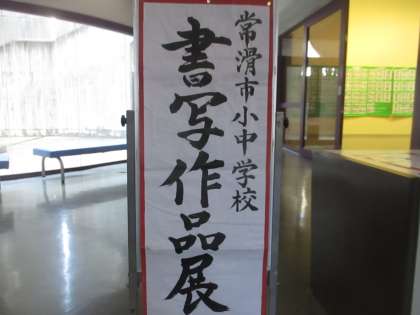 常滑市小中学校
書写作品展